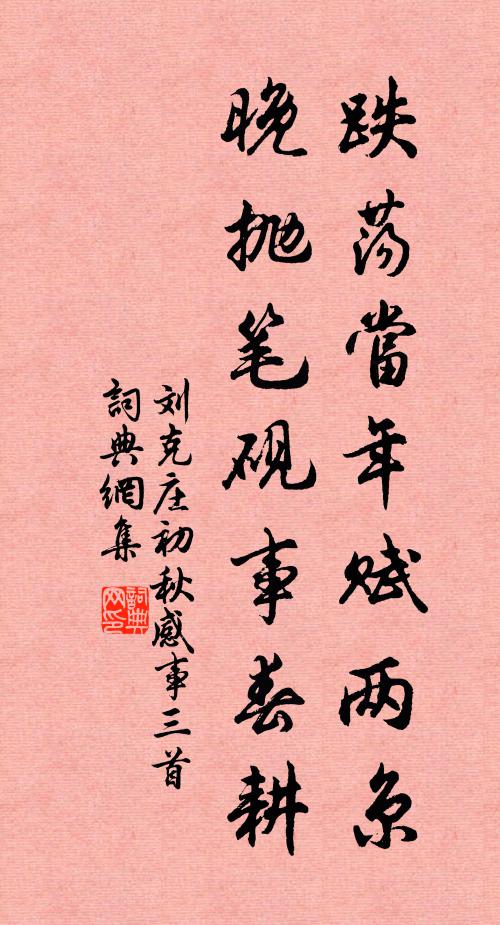 跌荡當年赋两京
晚抛笔砚事春耕
刘克庄初秋感事三首
詞典網集
詞典网印